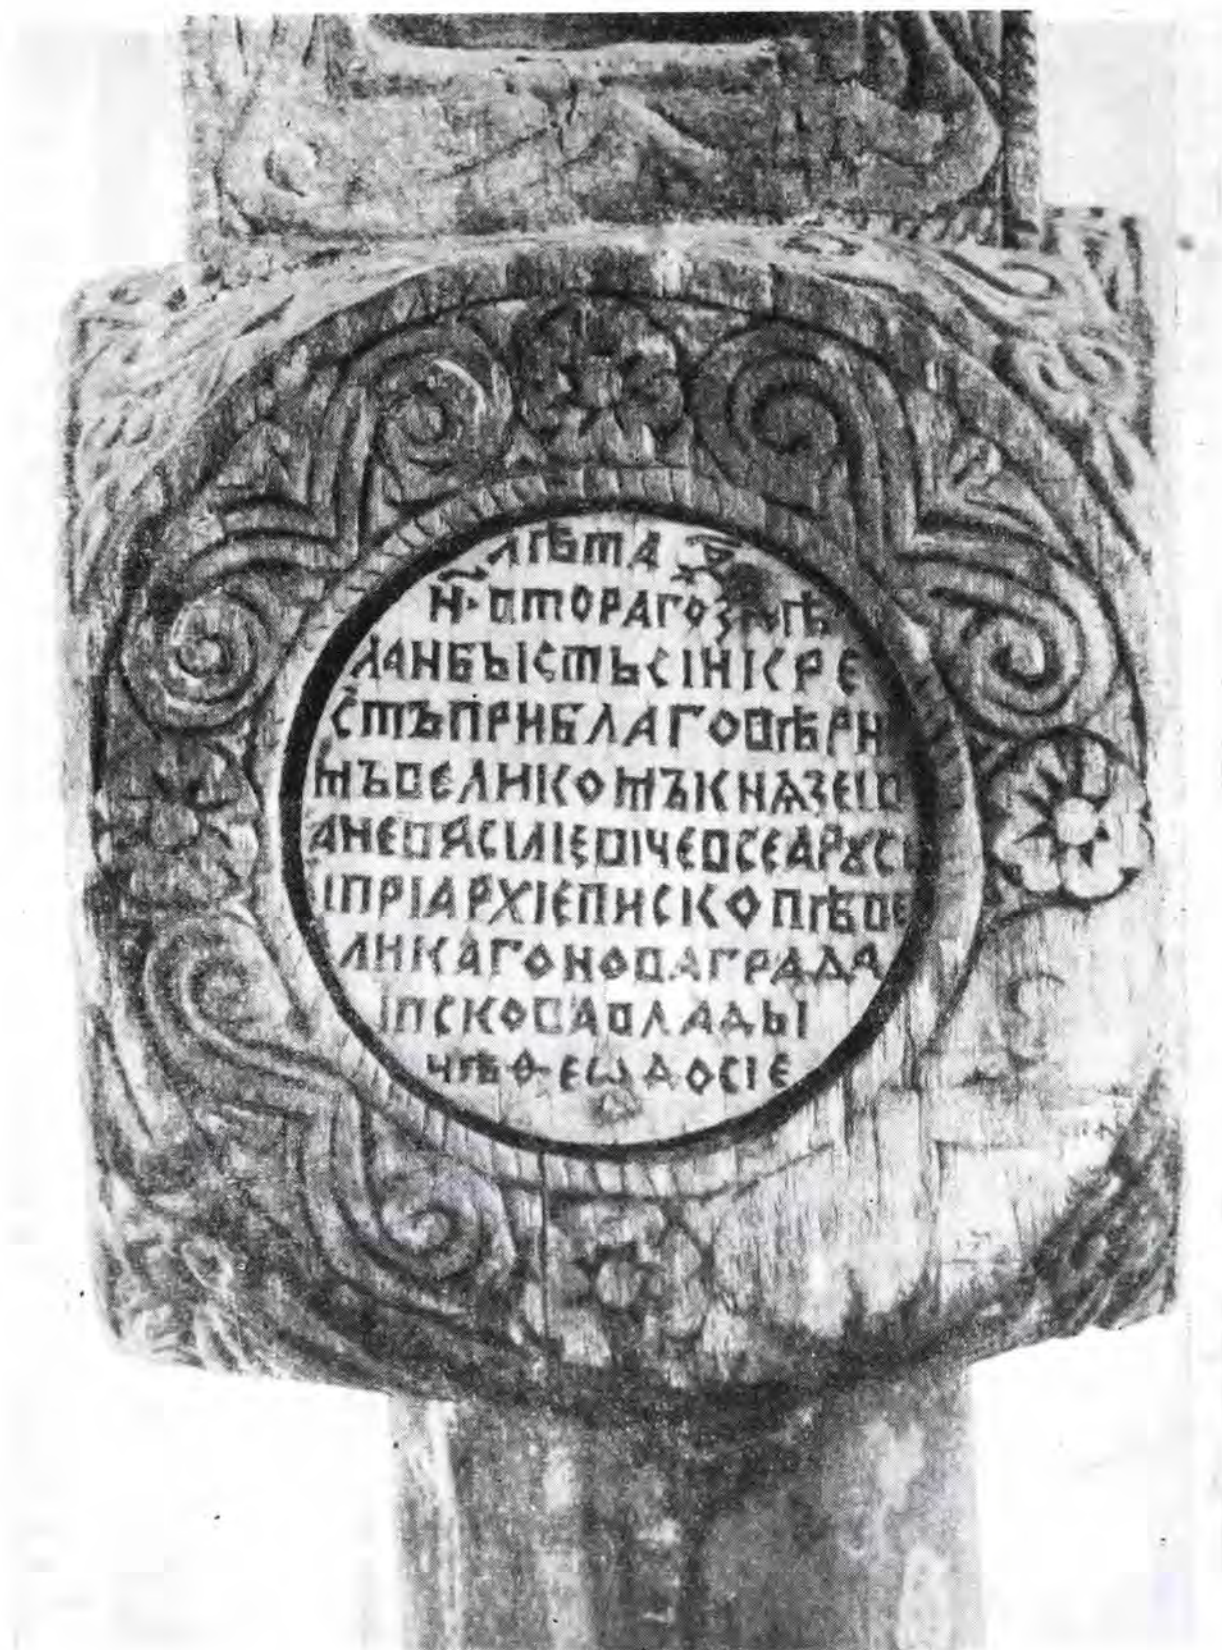 лѣта ҂з
н҃ второаго здѣ
ланбысть сіи кре
стъ при благовѣрн
мъ великомъ князе ів
ане васіліевіче всеа рꙋсі
і прі архіепископѣ ве
ликаго новаграда
і пскова влады
чѣ ѳеѡдосіе